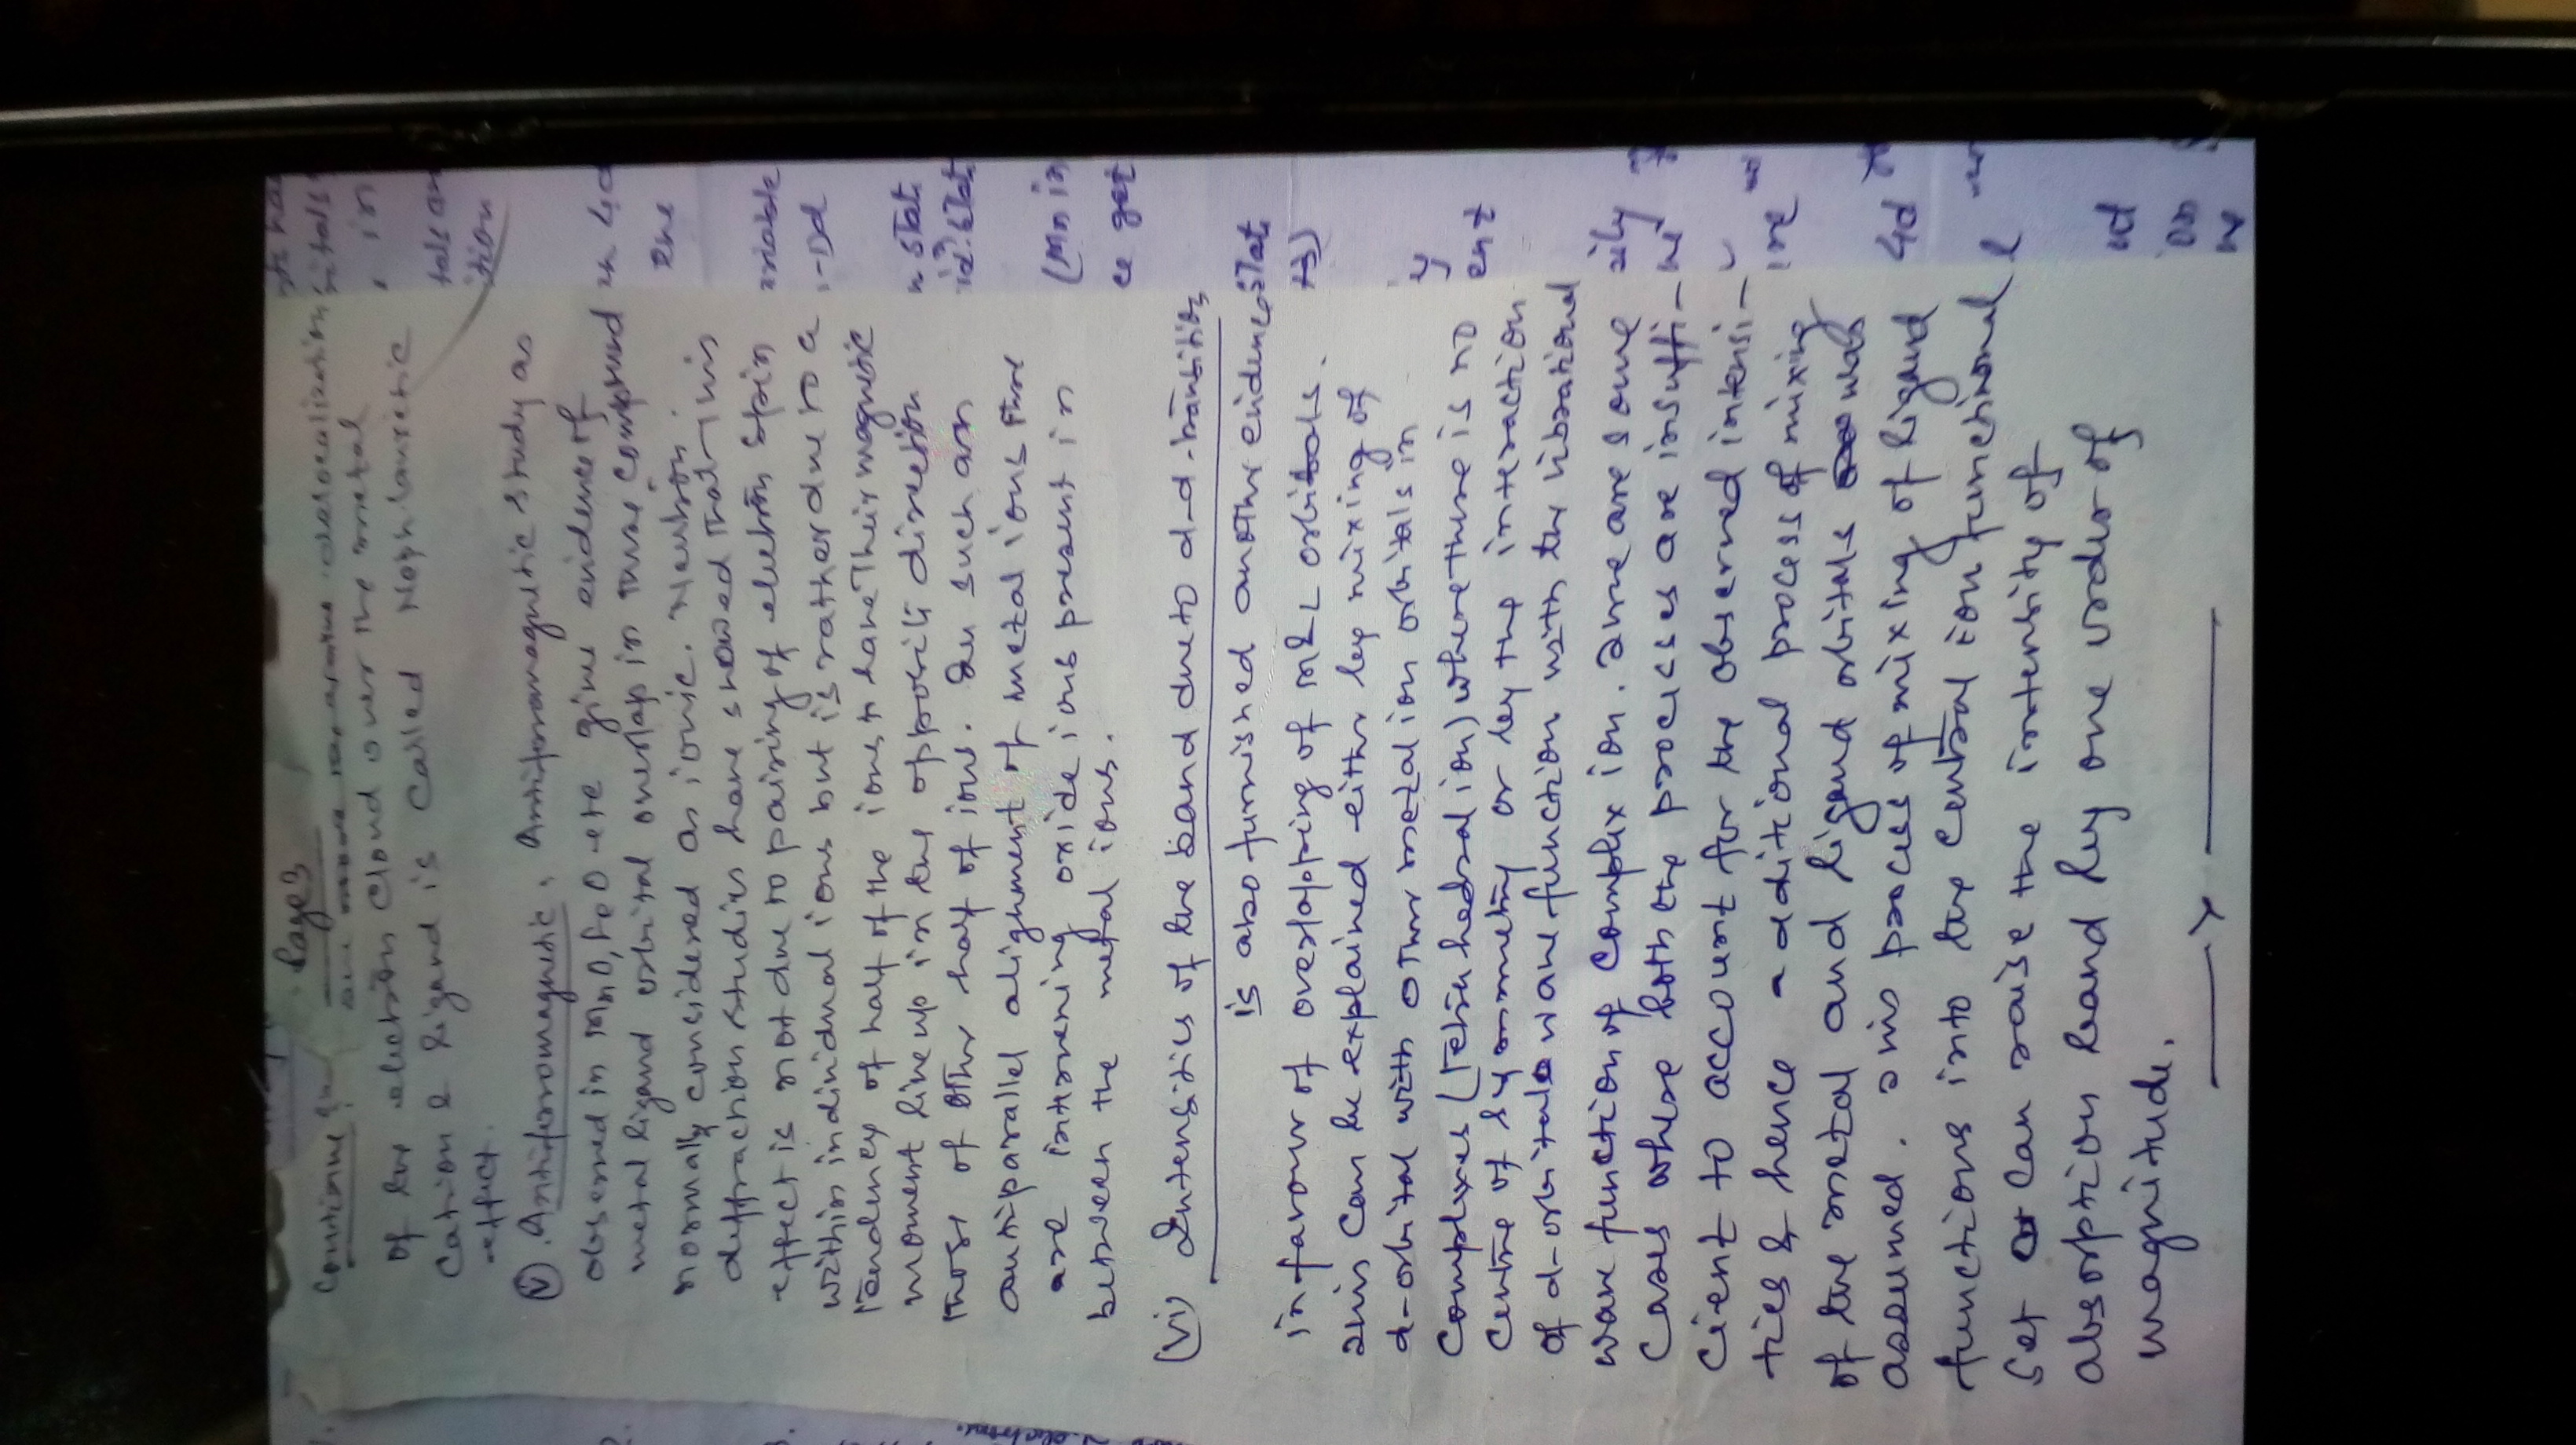 Page 3
Continue
delocalization
of the electron cloud over the metal
cation & ligand is called Nephlauxetic
effect.
(V). Antiferromagnetic, Antiferromagnetic study as
observed in MnO, FeO etc give evidence of
metal ligand orbital overlap in these compound
normally considered as ionic. Neutron
diffraction studies have showed that this
effect is not due to pairing of electron spin
within individual ions but is rather due to a
tendency of half of the ions to have their magnetic
moment line up in the opposite direction
those of other half of ions. In such an
antiparallel alignment of metal ions there
are intervening oxide ions present in
between the metal ions.
(Vi) Intensities of the band due to d-d-transition
is also furnished another evidences
in favour of overlopping of M&L orbitals.
This can be explained either by mixing of
d-orbital with other metal ion orbitals in
complexes (Tetrahedral ion) where there is no
centre of symmetry or by the interaction
of d-orbital wave function with the vibrational
wave function of complex ion. There are some
cases where both the processes are insuffi-
cient to account for the observed intensi-
ties & hence a additional process of mixing
of the metal and ligand orbitals was
assumed. This process of mixing of ligand
functions into the central ion functional
set can raise the intensity of
absorption band by one order of
magnitude.
—— x ——